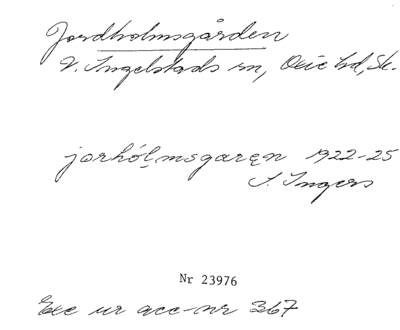 Jordholmsgården
V. Ingelstads sn, Oxie hd, Sk.
jorhólmsgaręn 1922-25
S. Ingers
Nr 23976
Exc ur acc-nr 367